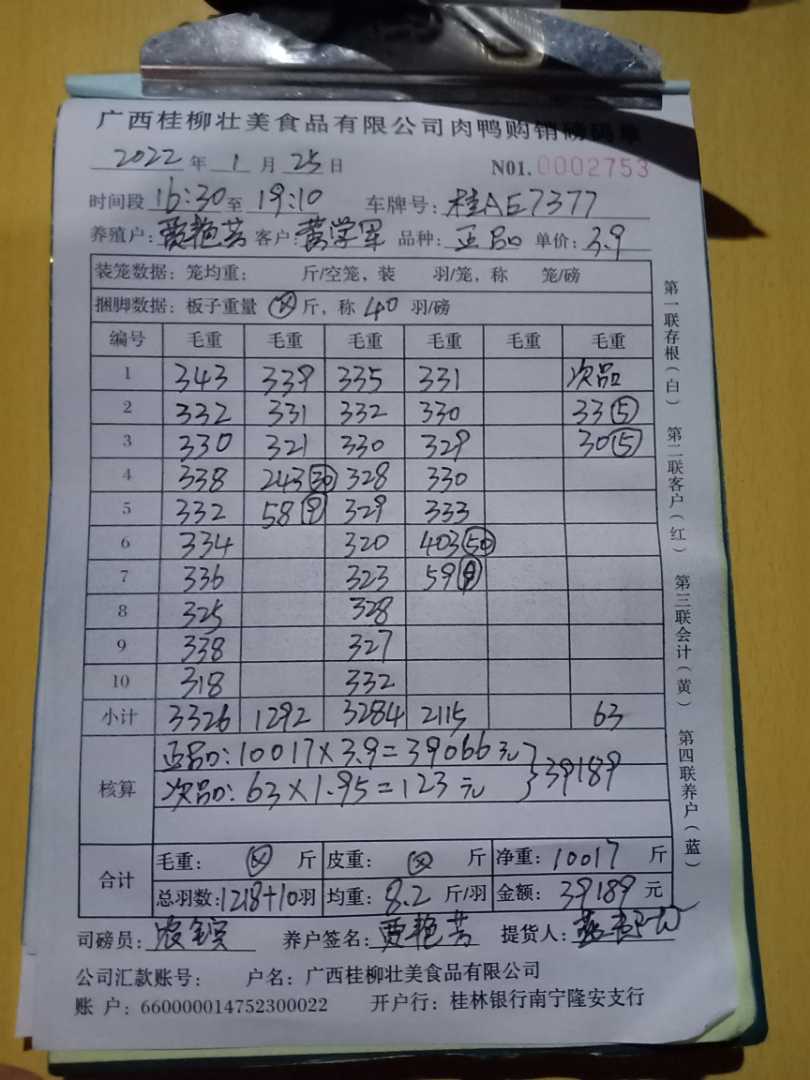 广西桂柳壮美食品有限公司肉鸭购销磅码单
2022 年 1 月 25 日 N01. 0002753
时间段 16:30 至 19:10 车牌号: 桂AE7377
养殖户: 贾艳芳 客户: 黄学军 品种: 正品 单价: 3.9
装笼数据: 笼均重: 斤/空笼, 装 羽/笼, 称 笼/磅
捆脚数据: 板子重量 斤, 称 40 羽/磅
编号 毛重 毛重 毛重 毛重 毛重 毛重
1 343 339 335 331 次品
2 332 331 332 330 33 5
3 330 321 330 329 30 5
4 338 243 30 328 330
5 332 58 9 329 333
6 334 320 403 50
7 336 323 59 9
8 325 328
9 338 327
10 318 332
小计 3326 1292 3284 2115 63
核算
正品: 10017×3.9=39066元
次品: 63×1.95=123元 } 39189
合计
毛重: 斤 皮重: 斤 净重: 10017 斤
总羽数: 1218+10 羽 均重: 8.2 斤/羽 金额: 39189 元
司磅员: 养户签名: 贾艳芳 提货人:
公司汇款账号: 户名: 广西桂柳壮美食品有限公司
账 户: 660000014752300022 开户行: 桂林银行南宁隆安支行
第一联存根(白) 第二联客户(红) 第三联会计(黄) 第四联养户(蓝)